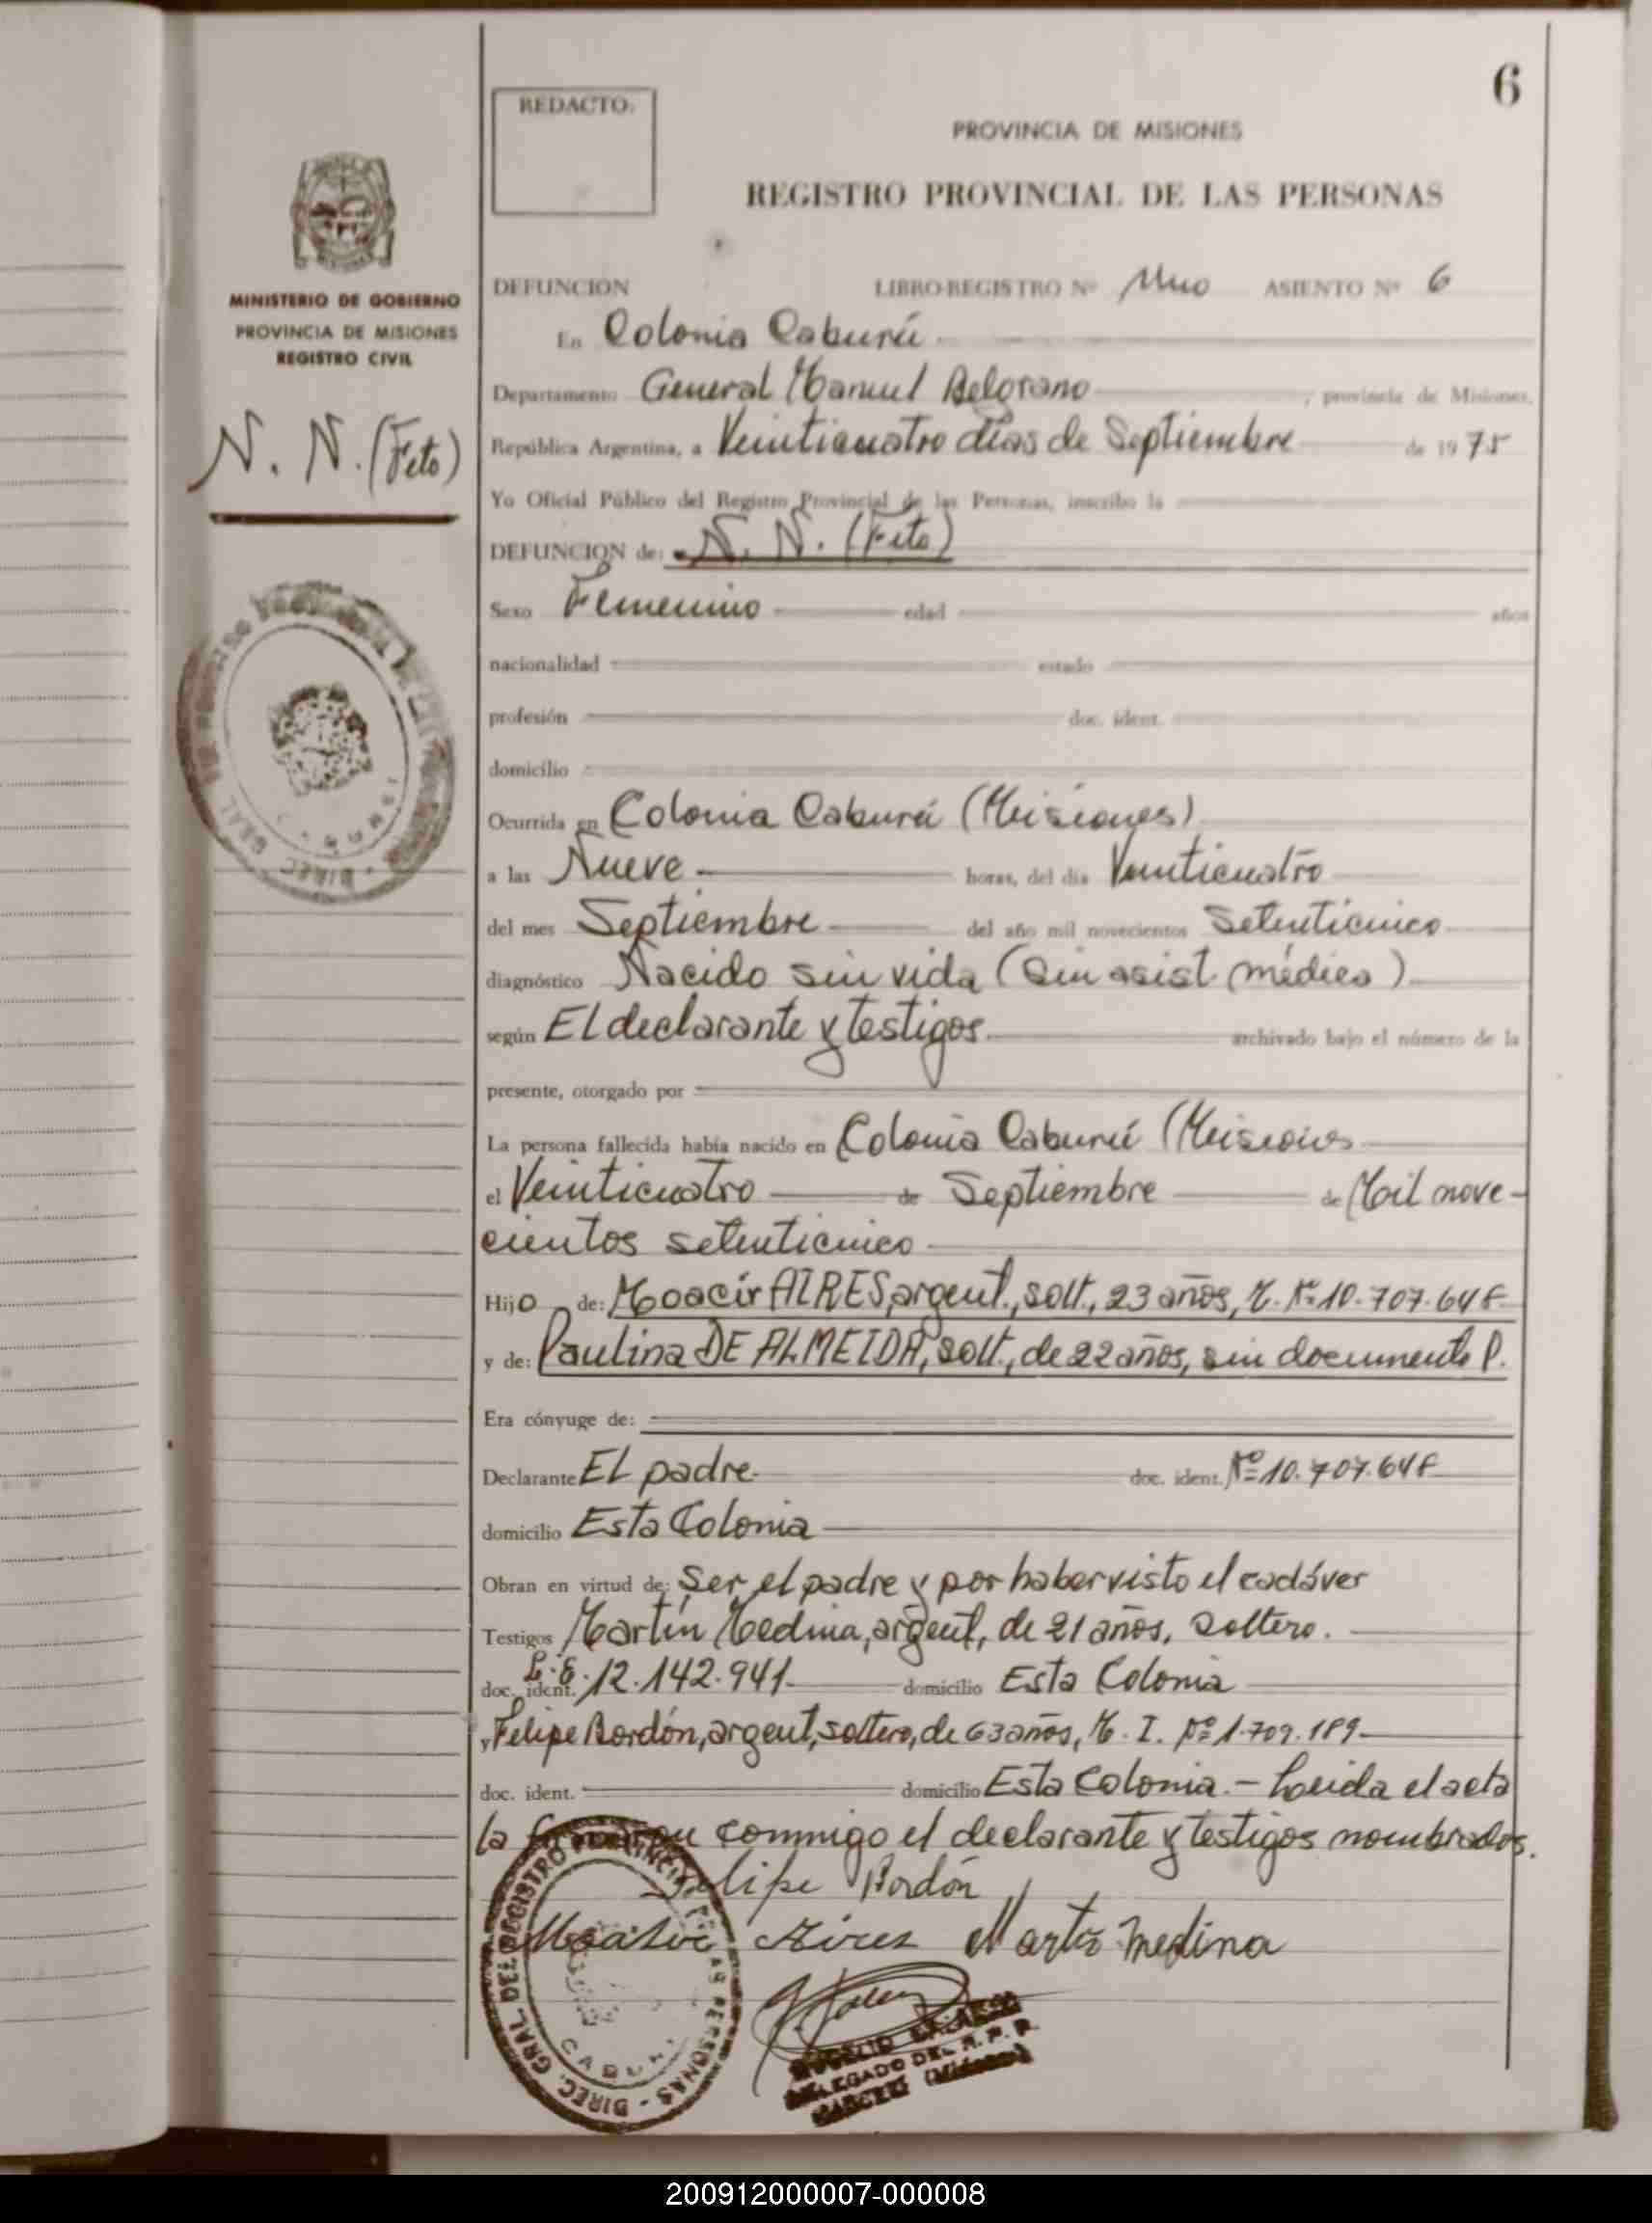 6
REDACTO:
PROVINCIA DE MISIONES
REGISTRO PROVINCIAL DE LAS PERSONAS
MINISTERIO DE GOBIERNO
PROVINCIA DE MISIONES
REGISTRO CIVIL
N. N. (Feto)
DEFUNCION LIBRO-REGISTRO Nº Uno ASIENTO Nº 6
En Colonia Caburéí
Departamento General Manuel Belgrano, provincia de Misiones,
República Argentina, a Veinticuatro días de Septiembre de 1975
Yo Oficial Público del Registro Provincial de las Personas, inscribo la
DEFUNCION de: N. N. (Feto)
Sexo Femenino edad años
nacionalidad estado
profesión doc. ident.
domicilio
Ocurrida en Colonia Caburéí (Misiones)
a las Nueve horas, del día Veinticuatro
del mes Septiembre del año mil novecientos Setenticinco
diagnóstico Nacido sin vida (Sin asist. médica)
según El declarante y testigos archivado bajo el número de la
presente, otorgado por
La persona fallecida había nacido en Colonia Caburéí (Misiones
el Veinticuatro de Septiembre de Mil nove-
cientos setenticinco
Hijo de: Moacir AIRES, argent., solt., 23 años, M. Nº 10.707.648
y de: Paulina DE ALMEIDA, solt., de 22 años, sin documento P.
Era cónyuge de:
Declarante El padre doc. ident. Nº 10.707.648
domicilio Esta Colonia
Obran en virtud de: Ser el padre y por haber visto el cadáver
Testigos Martín Medina, argent, de 21 años, soltero.
doc. ident. L.E. 12.142.941 domicilio Esta Colonia
y Felipe Bordón, argent, soltero, de 63 años, M. I. Nº 1.709.189
doc. ident. domicilio Esta Colonia.- Leída el acta
la firman conmigo el declarante y testigos nombrados.
Felipe Bordón
Aires Martín Medina
DIREC. GRAL. DEL REGISTRO PROVINCIAL DE LAS PERSONAS
DELEGADO DEL R. P. P.
(Misiones)
200912000007-000008